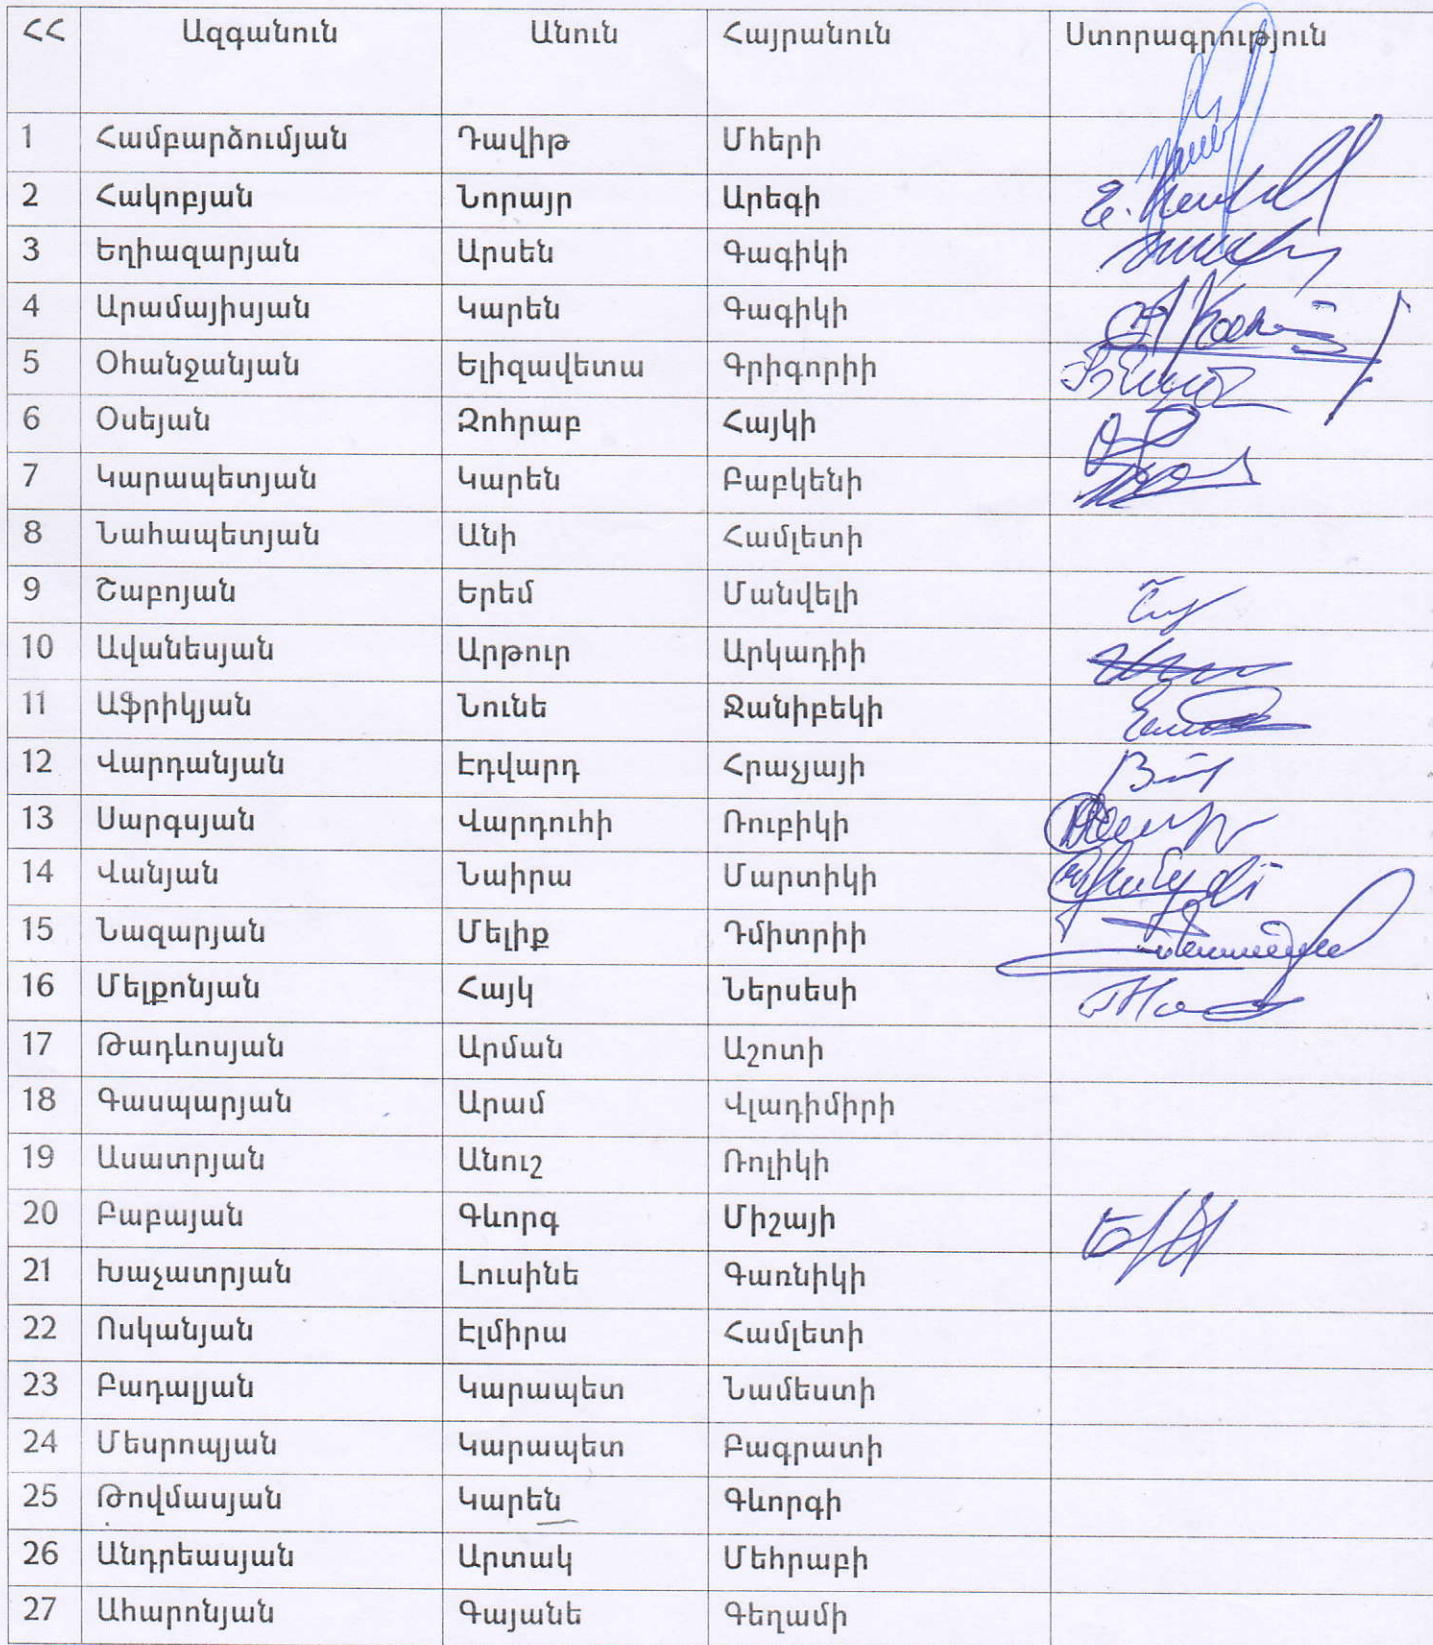 ՀՀ Ազգանուն Անուն Հայրանուն Ստորագրություն
1 Համբարձումյան Դավիթ Մհերի
2 Հակոբյան Նորայր Արեգի
3 Եղիազարյան Արսեն Գագիկի
4 Արամայիսյան Կարեն Գագիկի
5 Օհանջանյան Ելիզավետա Գրիգորիի
6 Օսեյան Զոհրաբ Հայկի
7 Կարապետյան Կարեն Բաբկենի
8 Նահապետյան Անի Համլետի
9 Շաբոյան Երեմ Մանվելի
10 Ավանեսյան Արթուր Արկադիի
11 Աֆրիկյան Նունե Ջանիբեկի
12 Վարդանյան Էդվարդ Հրաչյայի
13 Սարգսյան Վարդուհի Ռուբիկի
14 Վանյան Նաիրա Մարտիկի
15 Նազարյան Մելիք Դմիտրիի
16 Մելքոնյան Հայկ Ներսեսի
17 Թադևոսյան Արման Աշոտի
18 Գասպարյան Արամ Վլադիմիրի
19 Ասատրյան Անուշ Ռոլիկի
20 Բաբայան Գևորգ Միշայի
21 Խաչատրյան Լուսինե Գառնիկի
22 Ոսկանյան Էլմիրա Համլետի
23 Բադալյան Կարապետ Նամեստի
24 Մեսրոպյան Կարապետ Բագրատի
25 Թովմասյան Կարեն Գևորգի
26 Անդրեասյան Արտակ Մեհրաբի
27 Ահարոնյան Գայանե Գեղամի